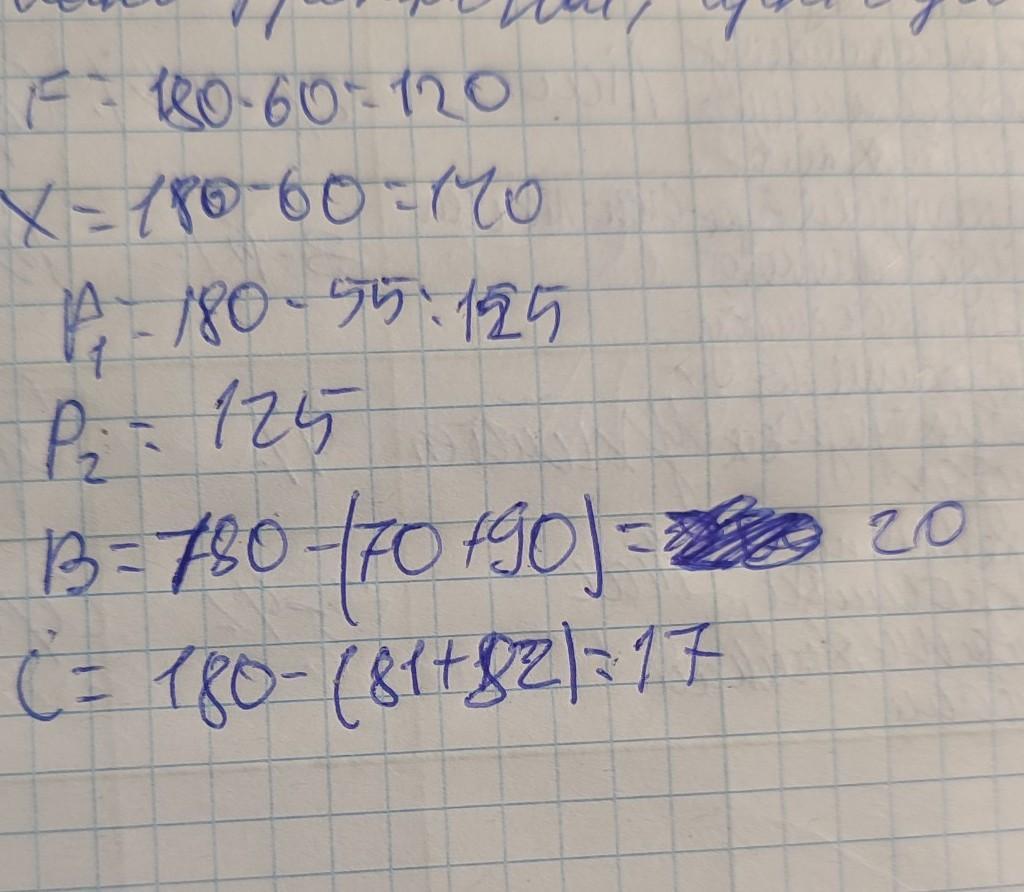 F = 180-60=120
X = 180-60=120
P₁ = 180-55=125
P₂ = 125
B = 180-(70+90)= 20
C = 180-(81+82)=17